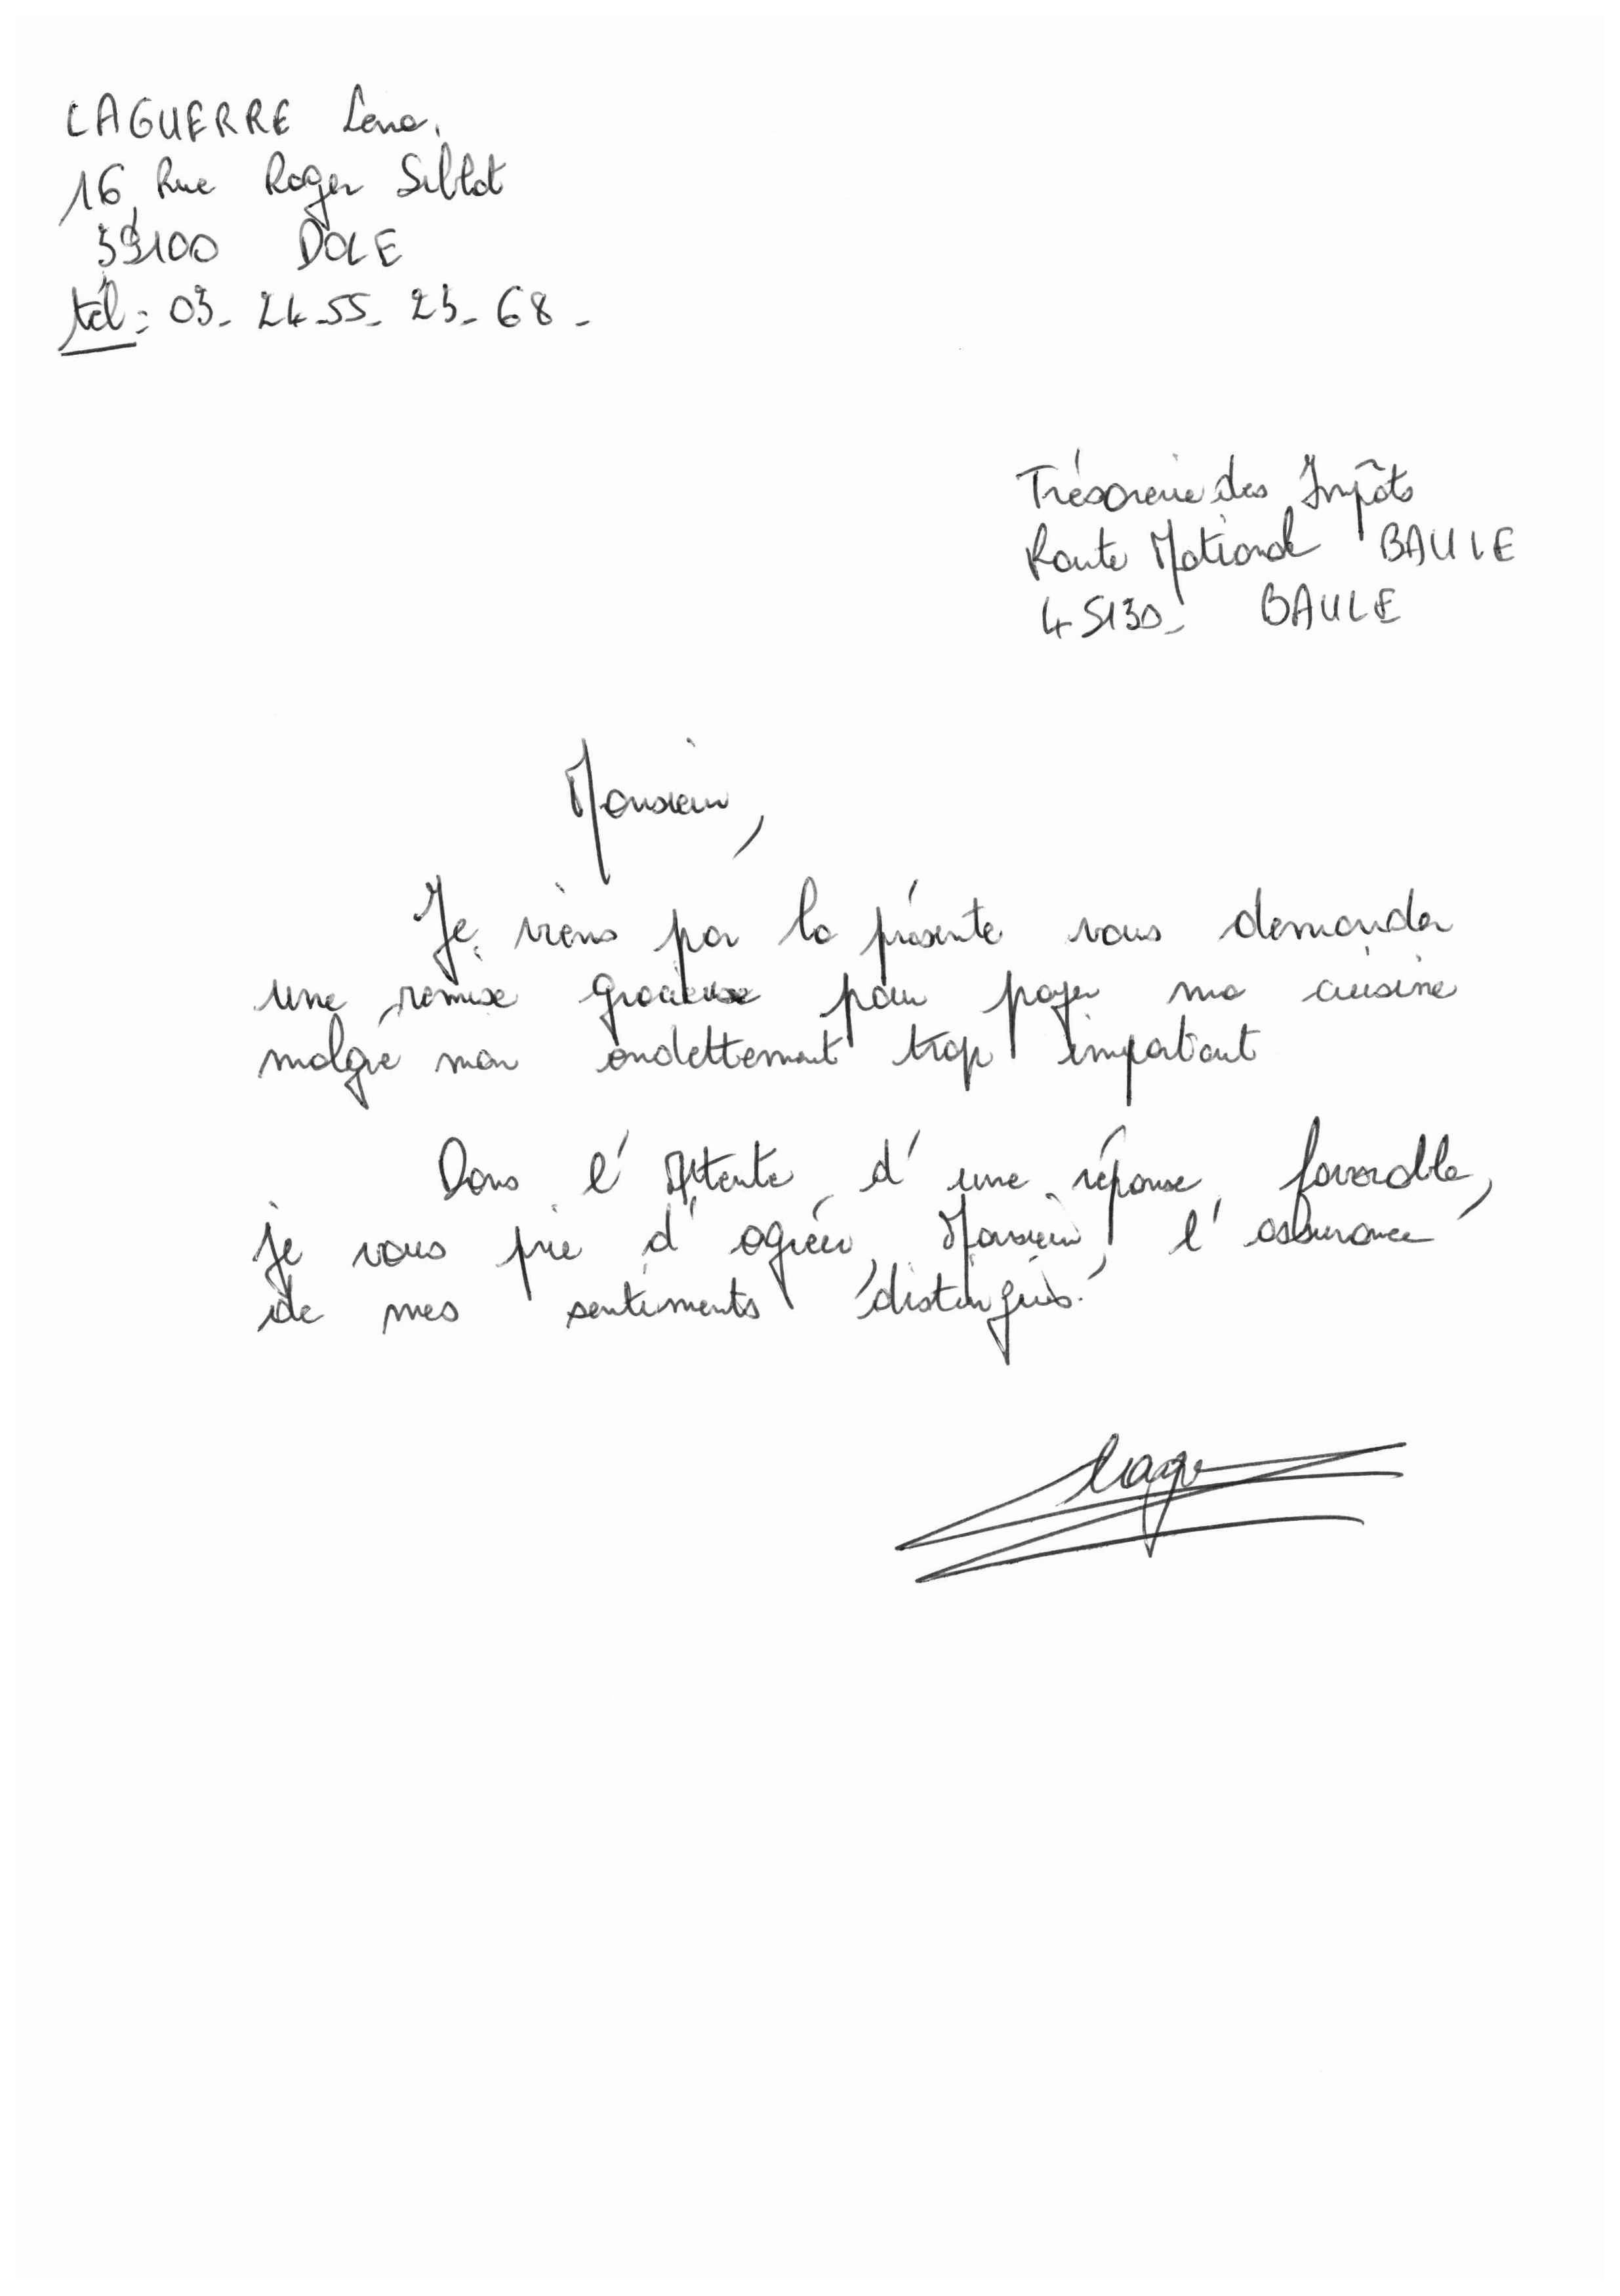 LAGUERRE Lena.
16, Rue Roger Sillot
39100 DOLE
tél : 03- 24-55- 23- 68 -
Trésorerie des Impôts
Route National BAULE
45130- BAULE
Monsieur,
Je viens par la présente vous demander
une remise gracieuse pour payer ma cuisine
malgré mon endettement trop important
Dans l'Attente d'une réponse favorable,
je vous prie d'agréer, Monsieur, l'assurance
de mes sentiments distingués.
Lague